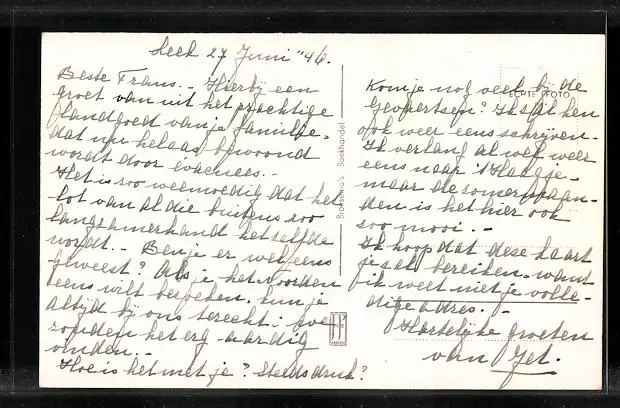 Leek 27 Juni "46.
Beste Frans.- Hierbij een
groet van uit het prachtige
landgoed van je familie.
dat nu helaas bewoond
wordt door évacuees.-
Het is zoo weemoedig dat het
lot van al die buitens zoo
langzamerhand hetzelfde
wordt.- Ben je er wel eens
geweest? Als je het Noorden
eens wilt bezoeken, kun je
altijd bij ons terecht; we
zouden het erg aardig
vinden.-
Hoe is het met je? Steeds druk?
Boekhandel
Kom je nog veel bij de
ECHTE FOTO
Ik zal hen
ook weer eens schrijven.
Ik verlang al wel weer
eens naar 't Haagje-
maar de zomermaan-
den is het hier ook
zoo mooi.-
Ik hoop dat deze kaart
je zal bereiken, want
ik weet niet je volle-
dige adres.-
Hartelijke groeten
van Jet.